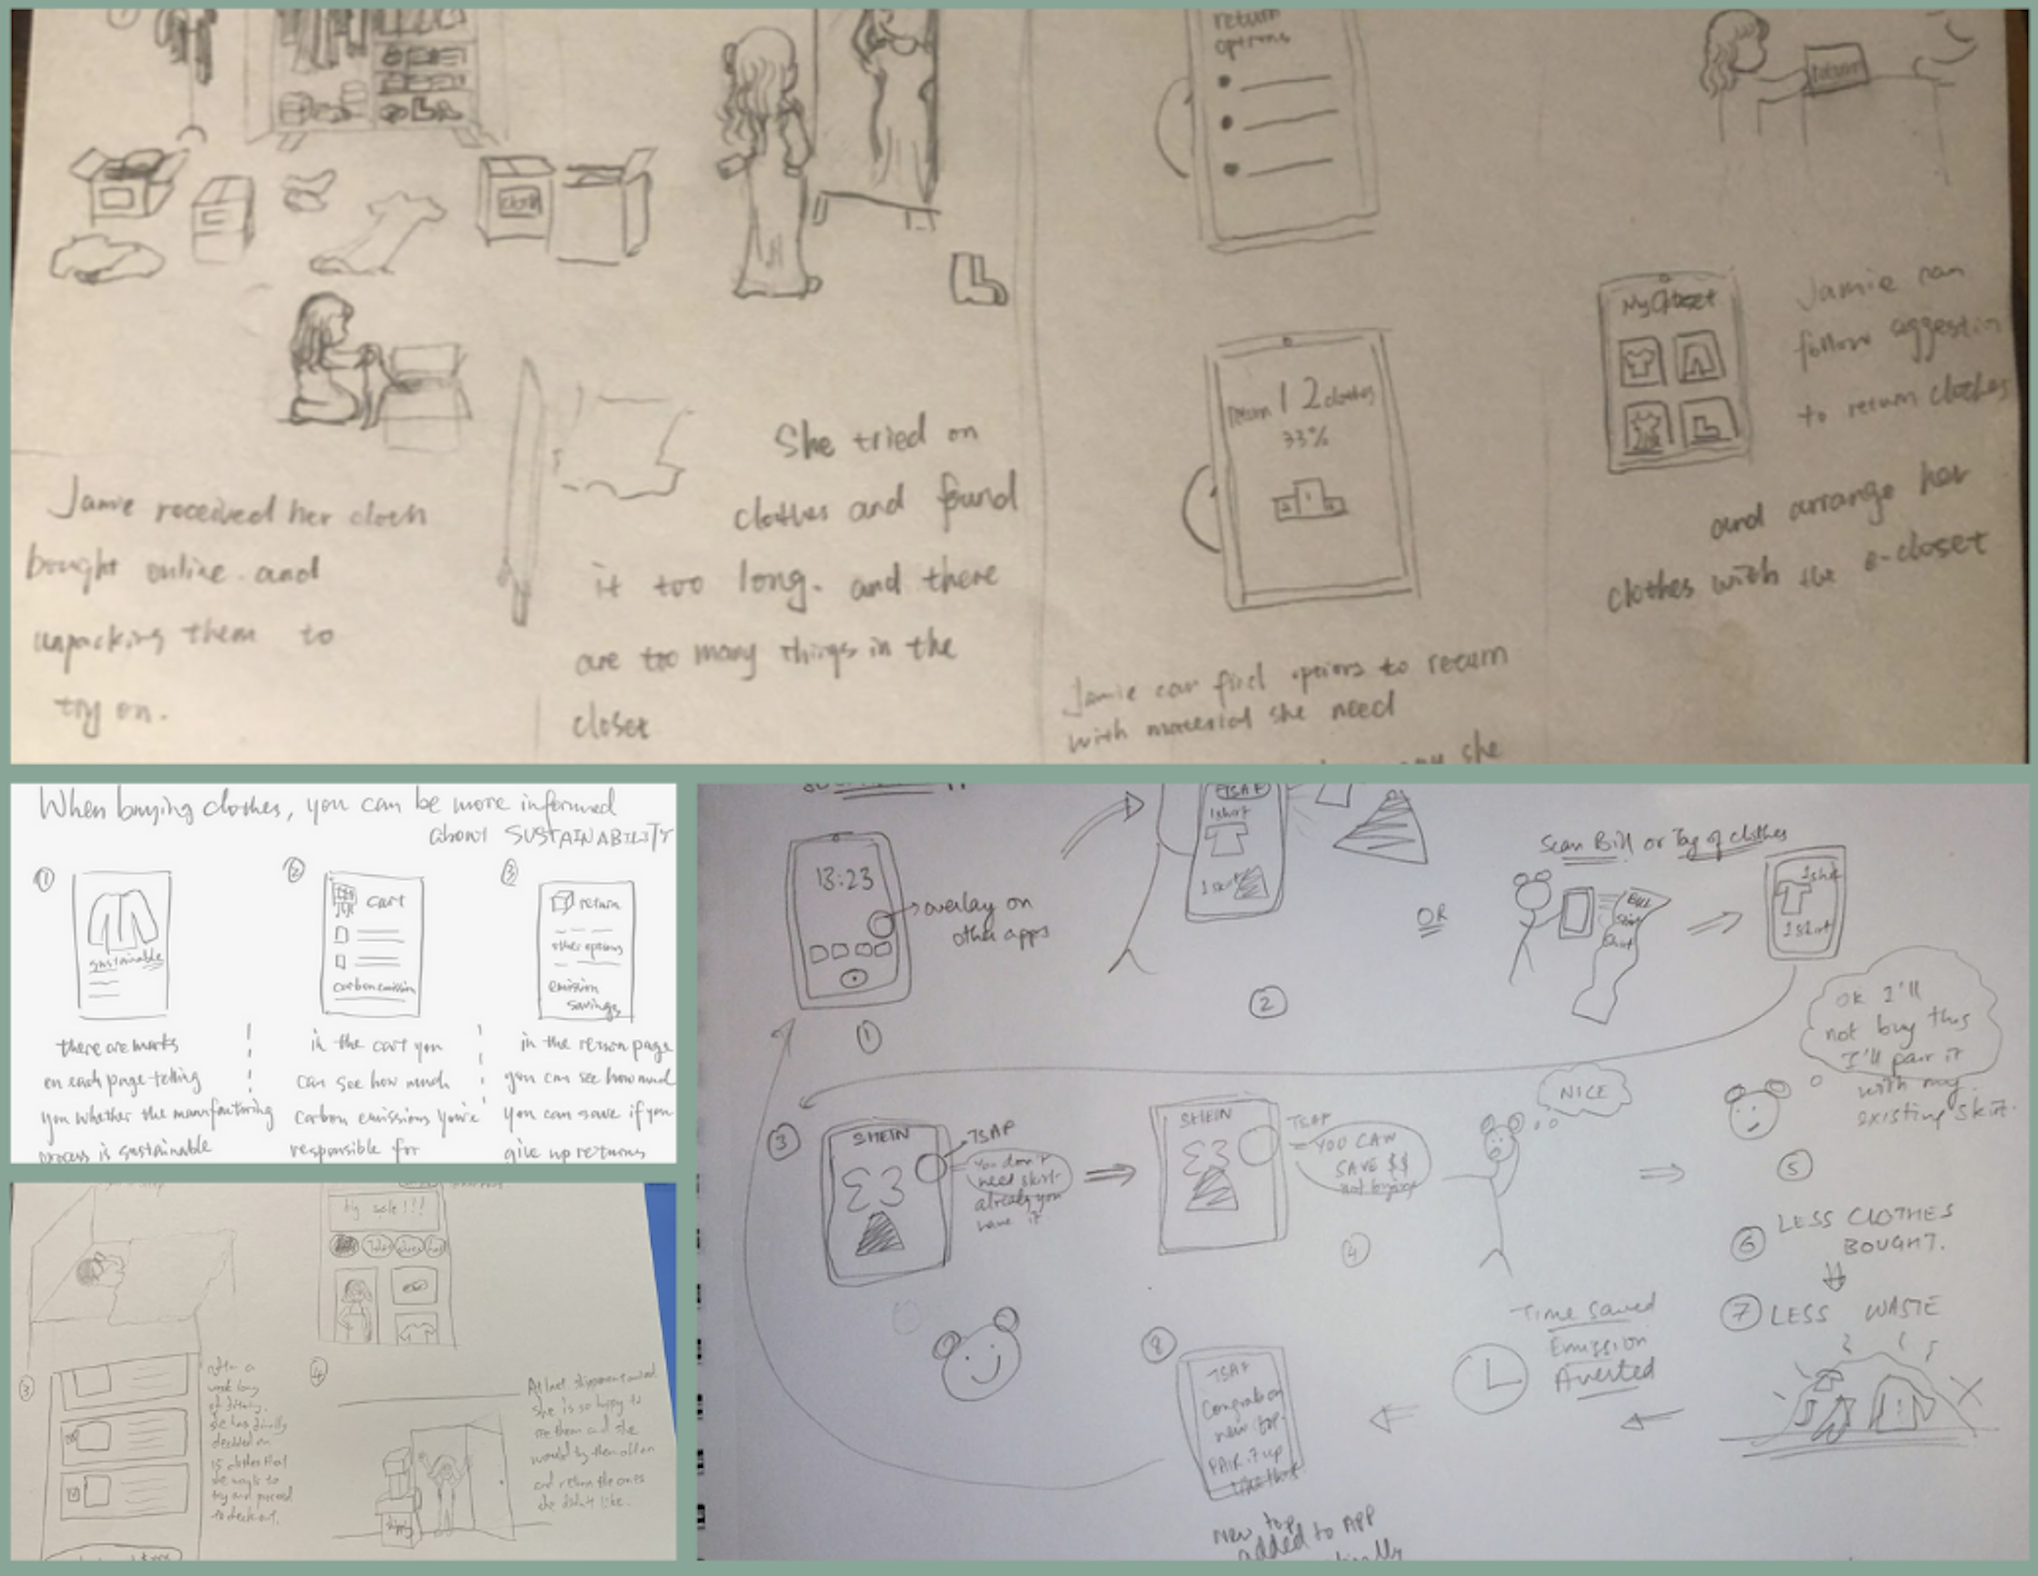 return
options
return
Jamie received her cloth
bought online and
unpacking them to
try on.
She tried on
clothes and found
it too long. and there
are too many things in the
closet
return 12 clothes
33%
Jamie can find options to return
with material she need
she
My Closet
Jamie can
follow
to return clothes
and arrange her
clothes with the e-closet
When buying clothes, you can be more informed
about SUSTAINABILITY
①
sustainable
there are marks
on each page telling
you whether the manufacturing
process is sustainable
②
cart
carbon emission
in the cart you
can see how much
carbon emissions you're
responsible for
③
return
other options
emission
savings
in the return page
you can see how much
you can save if you
give up returns
big sale!!!
③
after a
week long
she has finally
decided on
15 clothes that
she wants to
try and proceed
to checkout.
④
At last shipment arrived
she is so happy to
see them and she
would try them all on
and return the ones
she didn't like.
13:23
overlay on
other apps
①
TSAF
1 shirt
1 skirt
②
OR
Scan Bill or Tag of clothes
BILL
1 shirt
1 skirt
③
SHEIN
£3
TSAF
You don't
need skirt
already you
have it
SHEIN
£3
TSAF
YOU CAN
SAVE $$
not buying
④
NICE
OK I'll
not buy this
I'll pair it
with my
existing skirt.
⑤
⑥ LESS CLOTHES
BOUGHT.
⑦ LESS WASTE
Time Saved
Emission
Averted
⑧
TSAF
Congrats on
new top
PAIR it up
New top
added to APP